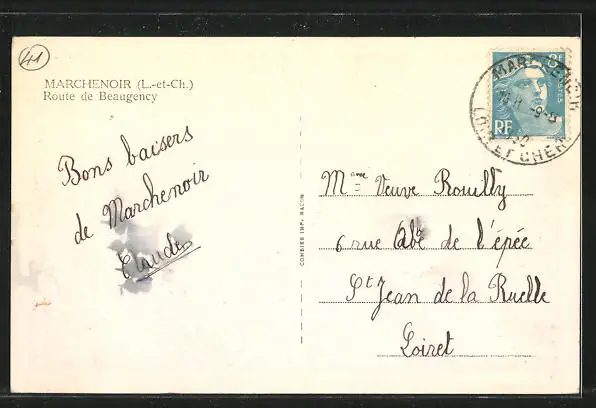 41
MARCHENOIR (L.-et-Ch.)
Route de Beaugency
Bons baisers
de Marchenoir
Claude
COMBIER IMP. MACON
MARCHENOIR
LOIR ET CHER
RF
Mme Veuve Rouilly
6 rue Abé de l'épée
St Jean de la Ruelle
Loiret